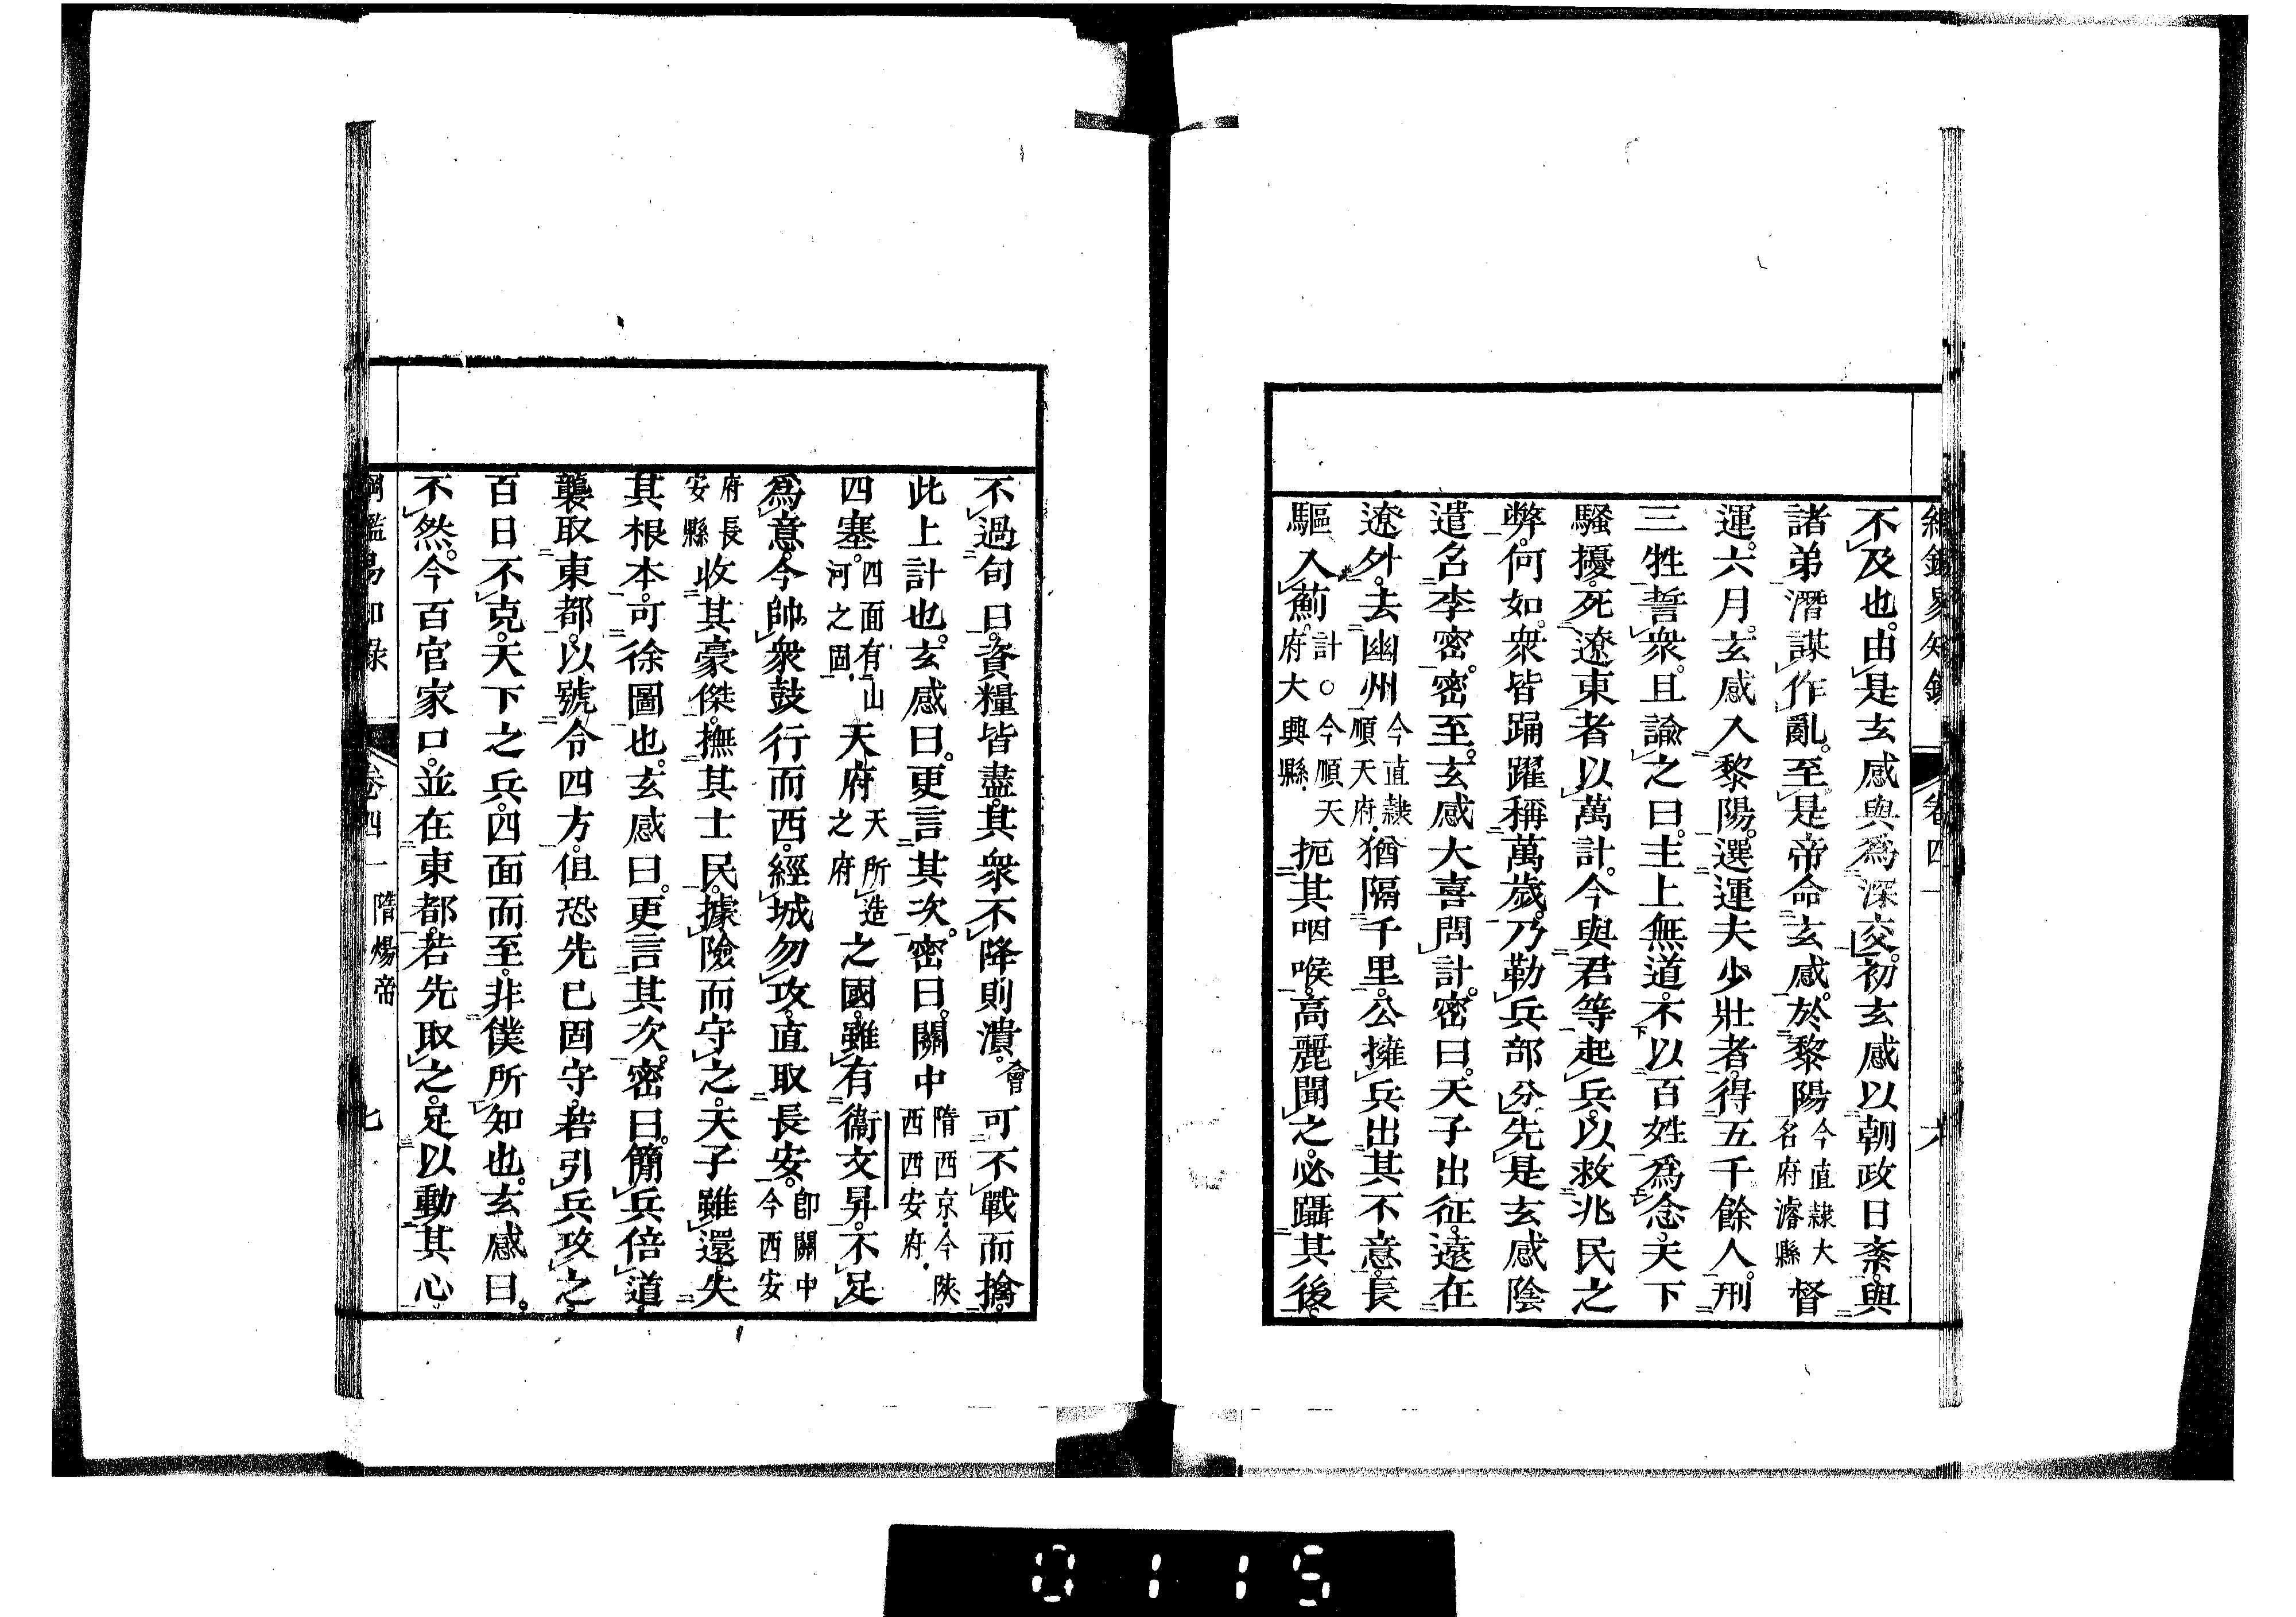 不及也。由是玄感與爲深交。初玄感以朝政日紊。與
諸弟潛謀作亂。至是帝命玄感。於黎陽今直隸大名府濬縣督
運。六月。玄感入黎陽。選運夫少壯者。得五千餘人。刑
三牲誓衆。且諭之曰。主上無道。不以百姓爲念。天下
騷擾。死遼東者以萬計。今與君等起兵。以救兆民之
弊。何如。衆皆踊躍稱萬歲。乃勒兵部分。先是玄感陰
遣召李密。密至。玄感大喜問計。密曰。天子出征。遠在
遼外。去幽州今直隸順天府。猶隔千里。公擁兵出其不意。長
驅入薊。計○今順天府大興縣。扼其咽喉。高麗聞之。必躡其後。
卷四一
六
不過旬日。資糧皆盡。其衆不降則潰。會可不戰而擒。
此上計也。玄感曰。更言其次。密曰。關中隋西京。今陝西西安府。
四塞。四面有山河之固。天府天所造之府之國。雖有衞文昇。不足
爲意。今帥衆鼓行而西。經城勿攻。直取長安。卽關中今西安
府長安縣收其豪傑。撫其士民。據險而守之。天子雖還。失
其根本。可徐圖也。玄感曰。更言其次。密曰。簡兵倍道。
襲取東都。以號令四方。但恐先已固守。若引兵攻之。
百日不克。天下之兵。四面而至。非僕所知也。玄感曰。
不然。今百官家口。並在東都。若先取之。足以動其心。
綱鑑易知錄
卷四一
隋煬帝
七
0115